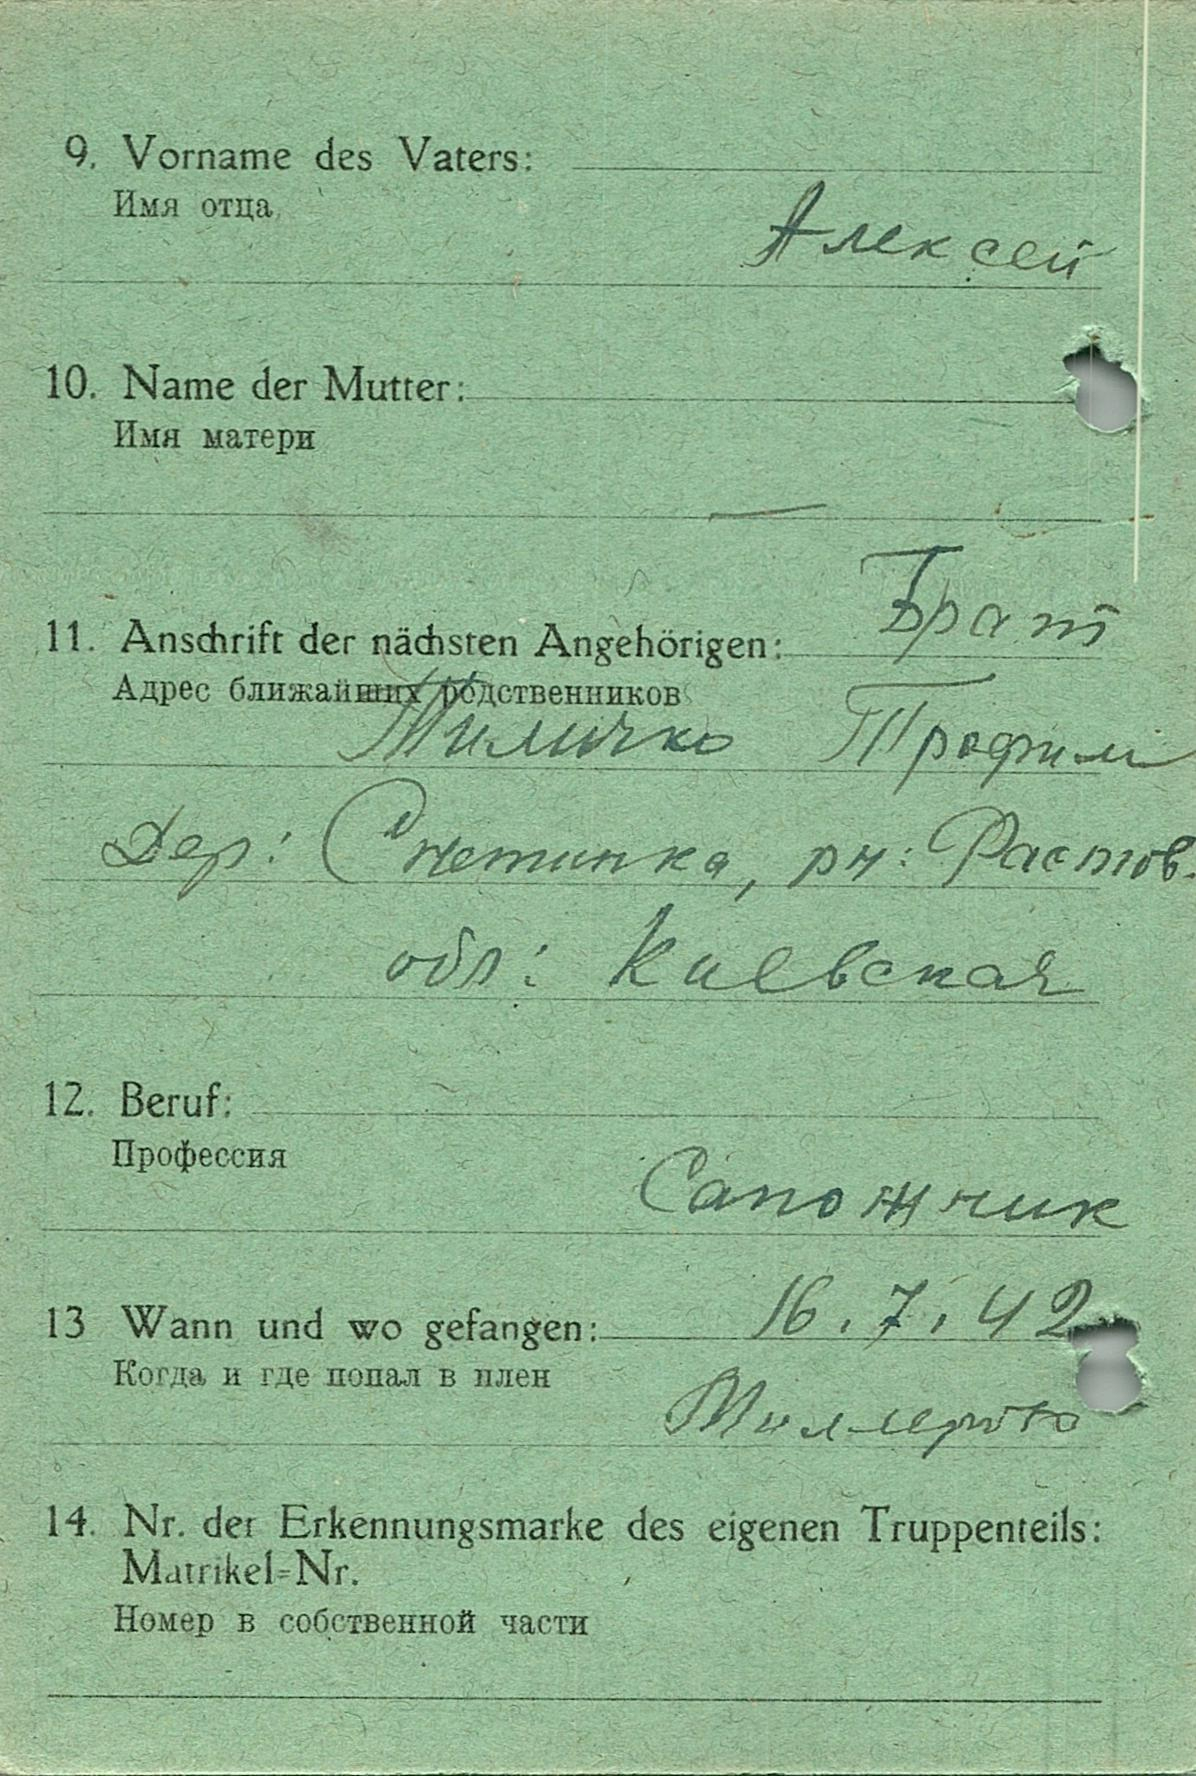 9. Vorname des Vaters:
Имя отца
Алексей
10. Name der Mutter:
Имя матери
—
Брат
11. Anschrift der nächsten Angehörigen:
Адрес ближайших родственников
Трофим
Дер: Снетинка, рн: Растов.
обл: Киевская
12. Beruf:
Профессия
Сапожник
16.7.42
13 Wann und wo gefangen:
Когда и где попал в плен
Миллерово
14. Nr. der Erkennungsmarke des eigenen Truppenteils:
Matrikel=Nr.
Номер в собственной части